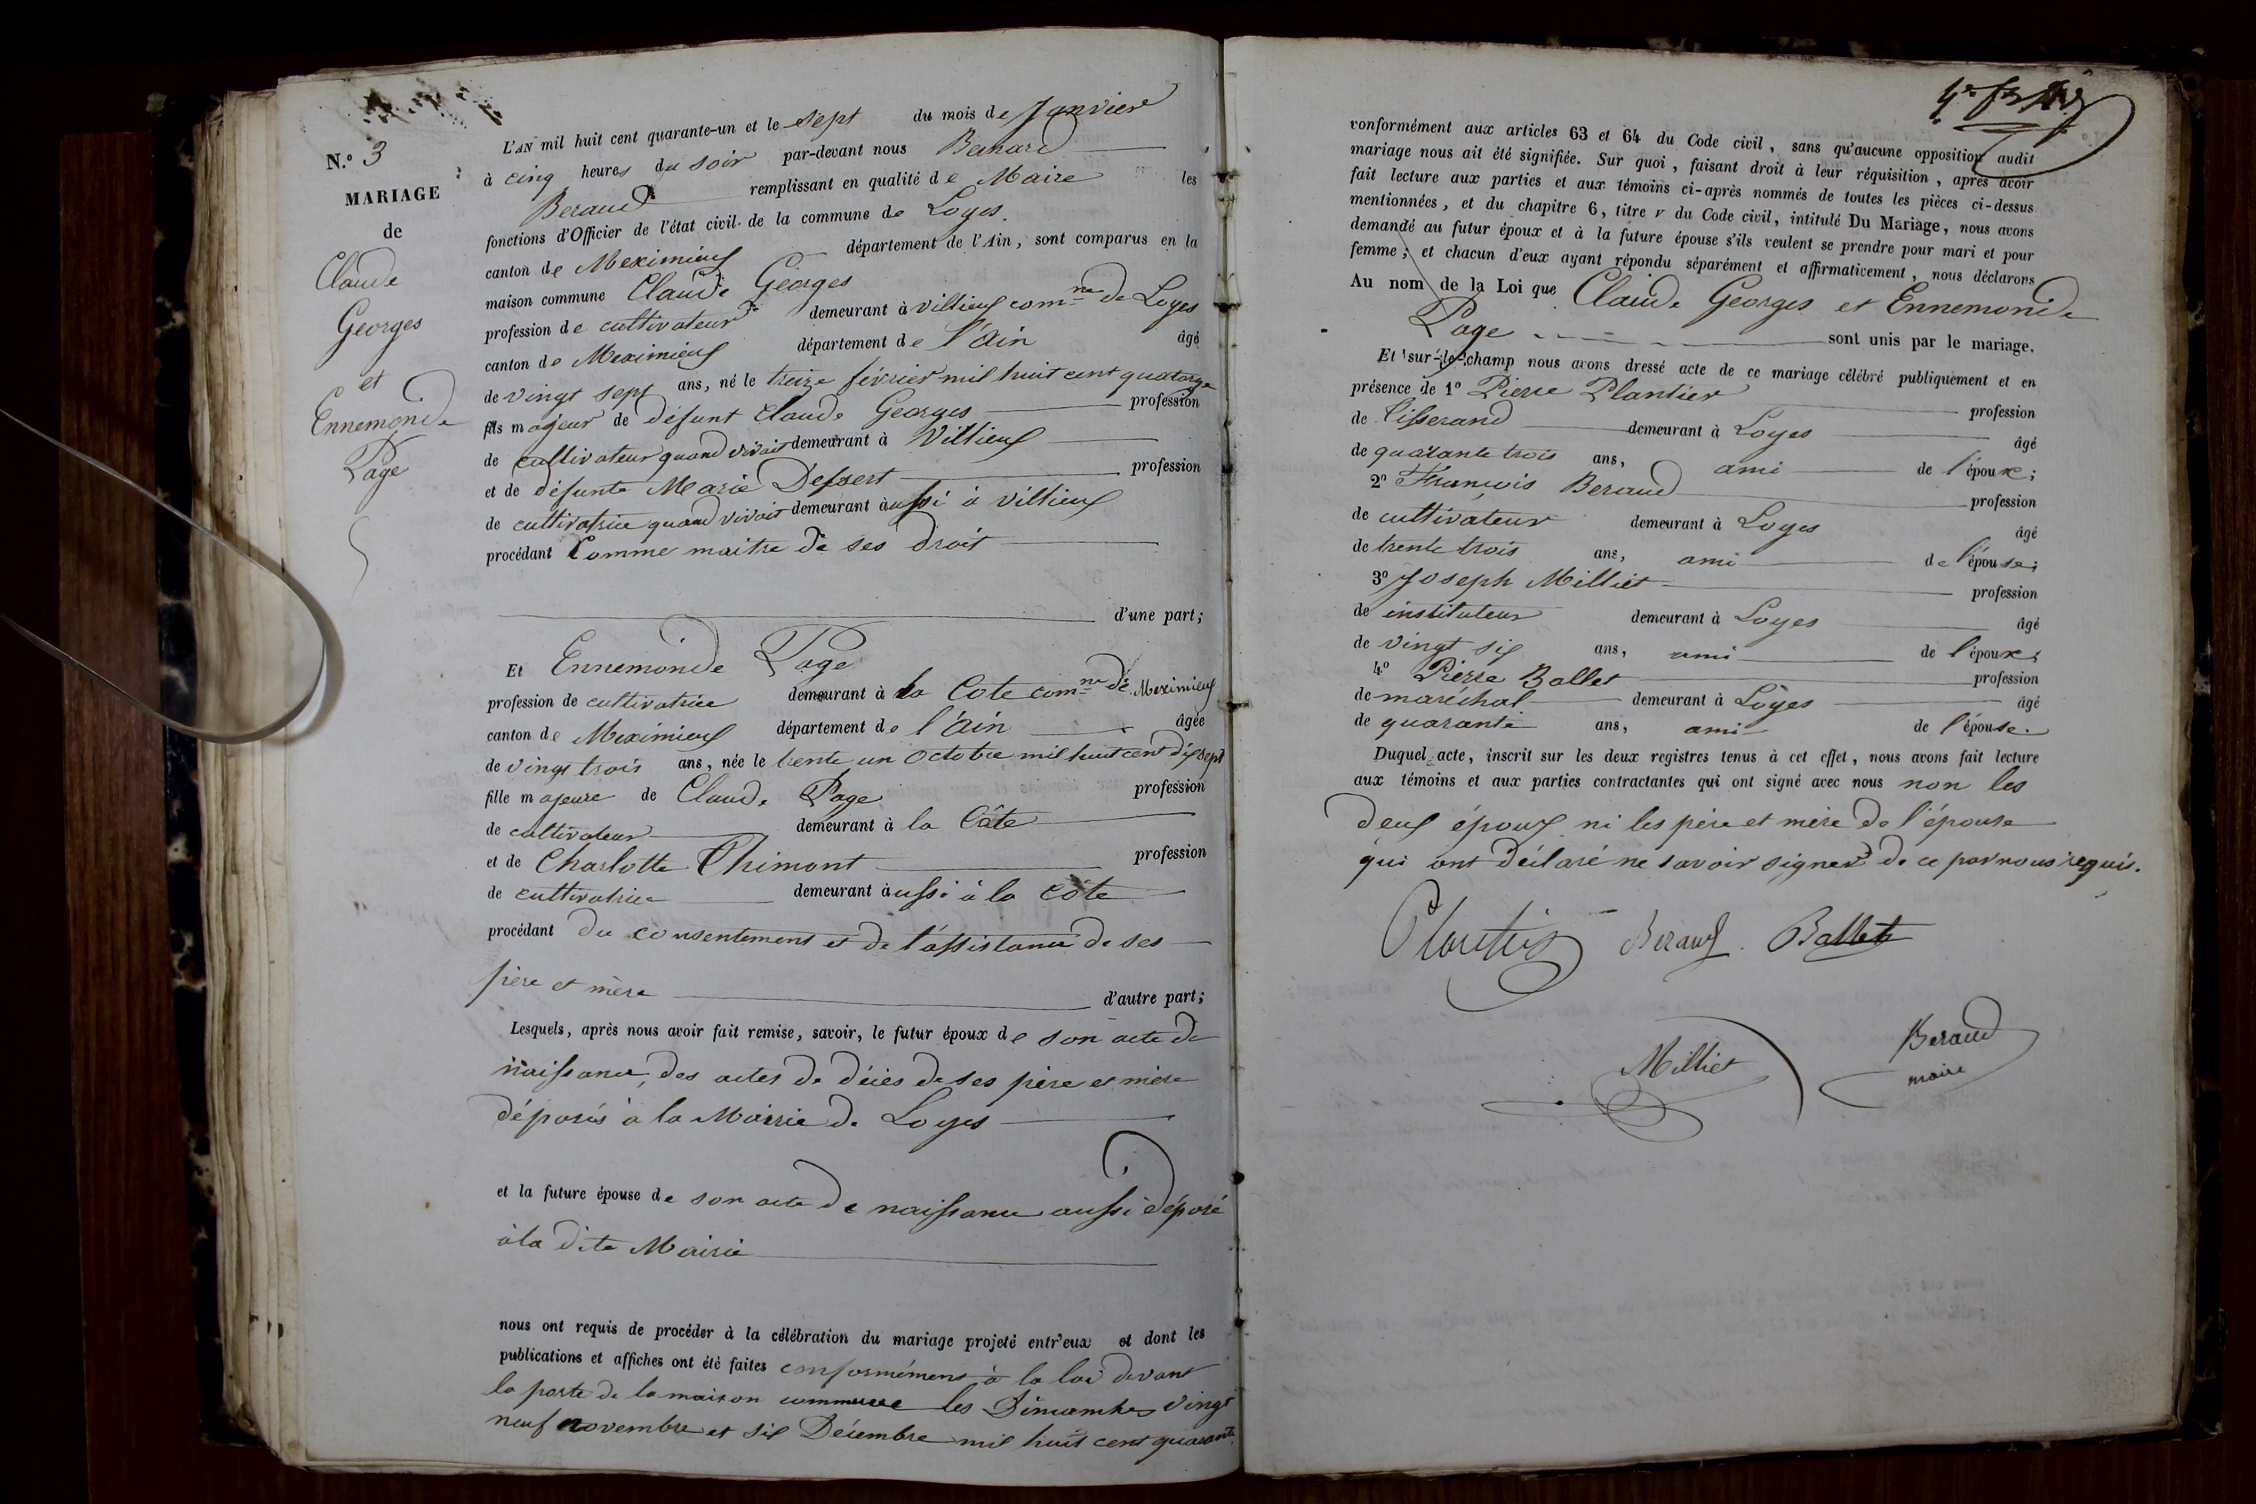 N.º 3
MARIAGE
de
Claude
Georges
et
Ennemonde
Page
L'AN mil huit cent quarante-un et le sept du mois de Janvier
à cinq heures du soir par-devant nous Bernard
Beraud remplissant en qualité de Maire les
fonctions d'Officier de l'état civil de la commune de Loyes.
canton de Meximieux département de l'Ain, sont comparus en la
maison commune Claude Georges
profession de cultivateur demeurant à villieux com.ne de Loyes
canton de Meximieux département de l'Ain âgé
de vingt sept ans, né le treize février mil huit cent quatorze
fils majeur de défunt Claude Georges profession
de cultivateur quand vivait demeurant à Villieux
et de défunte Marie profession
de cultivatrice quand vivait demeurant aussi à villieux
procédant Comme maitre de ses droit
d'une part;
Et Ennemonde Page
profession de cultivatrice demeurant à la Cote com.ne de Meximieux
canton de Meximieux département de l'Ain âgée
de vingt trois ans, née le trente un octobre mil huit cent dix sept
fille majeure de Claude Page profession
de cultivateur demeurant à la Côte
et de Charlotte Thimont profession
de cultivatrice demeurant aussi à la côte
procédant du consentement et de l'assistance de ses
père et mère d'autre part;
Lesquels, après nous avoir fait remise, savoir, le futur époux de son acte de
naissance, des actes de décès de ses père et mère
déposés à la Mairie de Loyes
et la future épouse de son acte de naissance aussi déposé
à la dite Mairie
nous ont requis de procéder à la célébration du mariage projeté entr'eux et dont les
publications et affiches ont été faites conformément à la loi devant
la porte de la maison commune les Dimanches vingt
neuf novembre et six Décembre mil huit cent quarante
conformément aux articles 63 et 64 du Code civil, sans qu'aucune opposition audit
mariage nous ait été signifiée. Sur quoi, faisant droit à leur réquisition, après avoir
fait lecture aux parties et aux témoins ci-après nommés de toutes les pièces ci-dessus
mentionnées, et du chapitre 6, titre v du Code civil, intitulé Du Mariage, nous avons
demandé au futur époux et à la future épouse s'ils veulent se prendre pour mari et pour
femme; et chacun d'eux ayant répondu séparément et affirmativement, nous déclarons
Au nom de la Loi que Claude Georges et Ennemonde
Page sont unis par le mariage.
Et sur-le-champ nous avons dressé acte de ce mariage célébré publiquement et en
présence de 1º Pierre Plantier profession
de Tisserand demeurant à Loyes âgé
de quarante trois ans, ami de l'époux;
2º François Beraud profession
de cultivateur demeurant à Loyes âgé
de trente trois ans, ami de l'épouse;
3º Joseph Milliet profession
de instituteur demeurant à Loyes âgé
de vingt six ans, ami de l'époux;
4º Pierre Ballet profession
de maréchal demeurant à Loyes âgé
de quarante ans, ami de l'épouse.
Duquel acte, inscrit sur les deux registres tenus à cet effet, nous avons fait lecture
aux témoins et aux parties contractantes qui ont signé avec nous non les
deux époux ni les père et mère de l'épouse
qui ont déclaré ne savoir signer de ce par nous requis.
Plantier Beraud Ballet
Milliet Beraud
maire